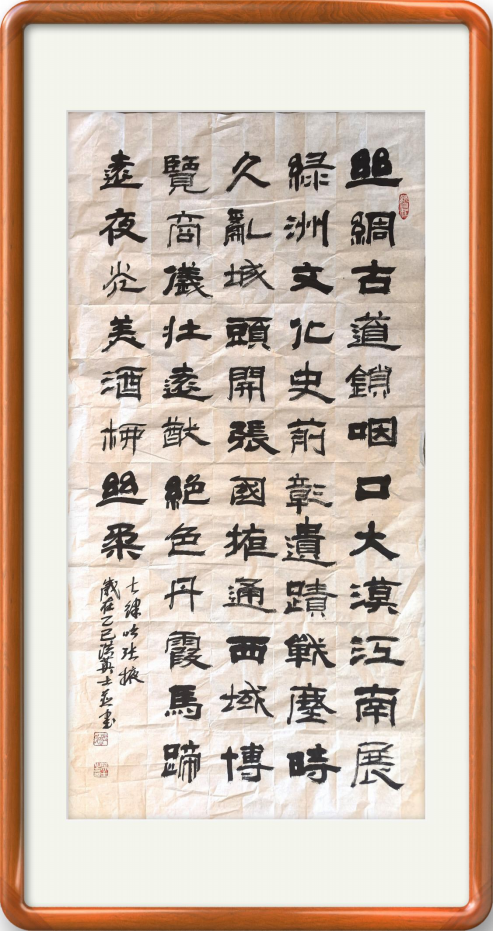 絲綢古道鎖咽口大漠江南展
綠洲文化史前彰遺蹟戰塵時
久亂城頭開張國掖通西域博
覽商儀壯遠猷絕色丹霞馬蹄
遠夜光美酒柳絲柔
七律咏张掖
歲在乙巳 书